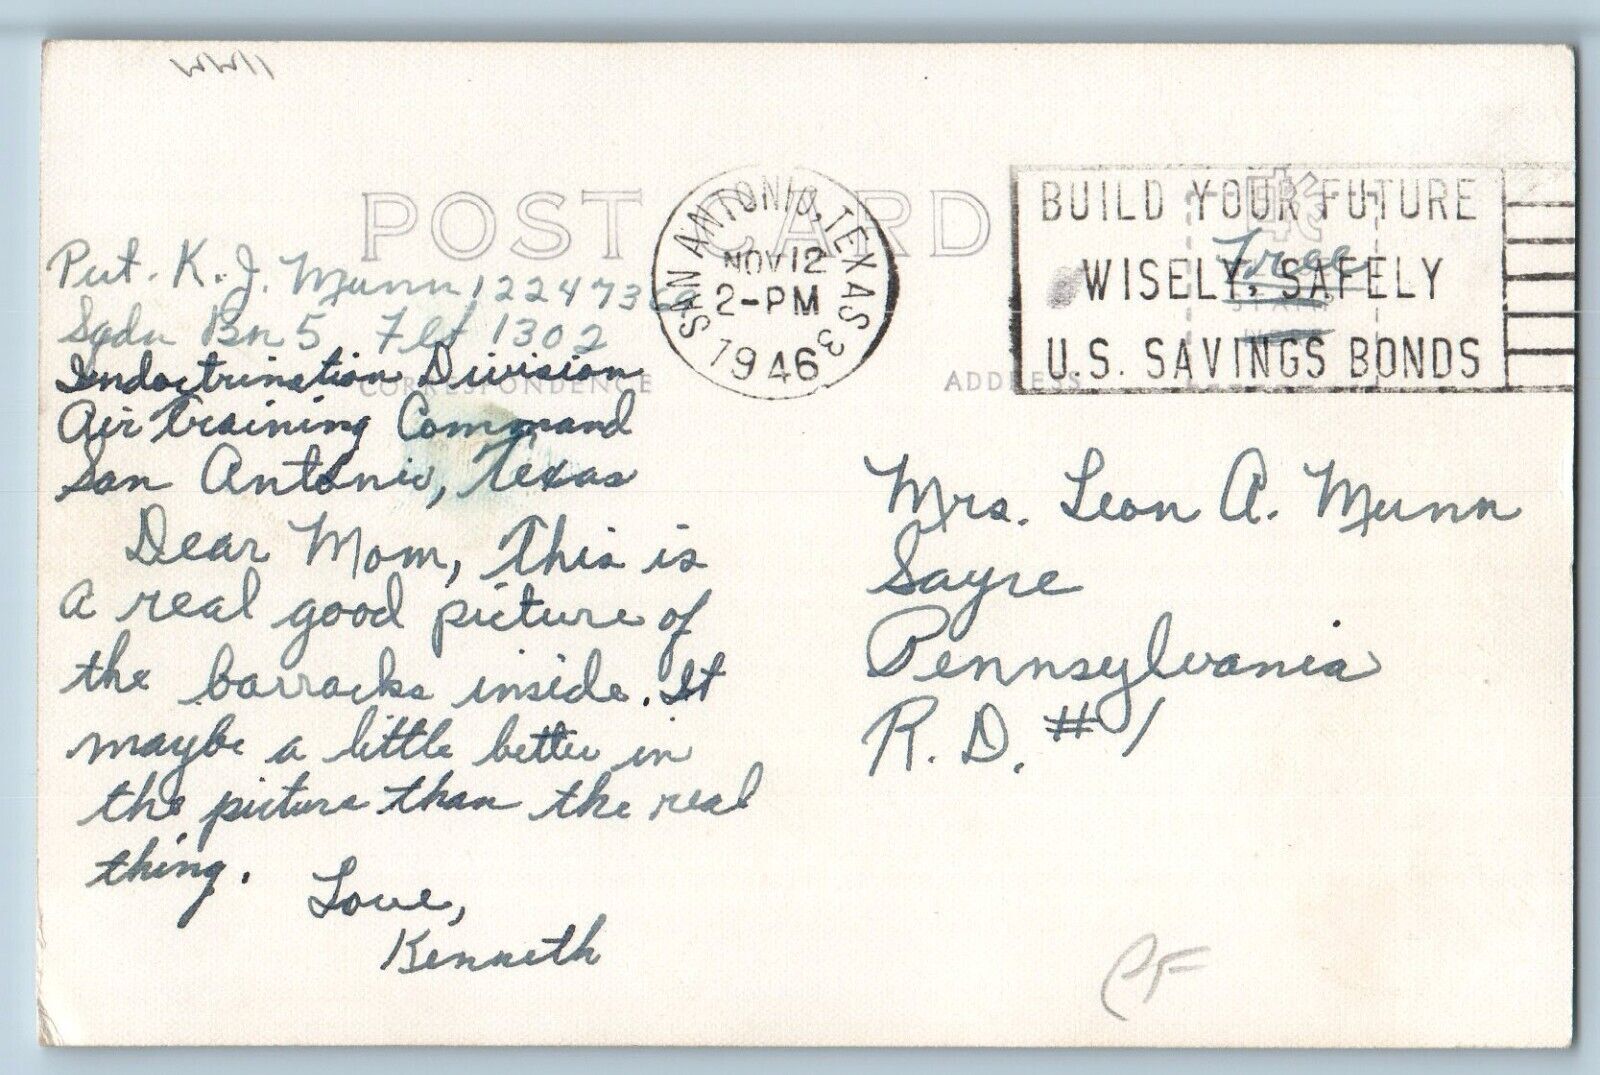 POST CARD
SAN ANTONIO, TEXAS 3
NOV 12
2-PM
1946
BUILD YOUR FUTURE
WISELY, SAFELY
U.S. SAVINGS BONDS
Free
Pvt. K. J. Munn 122473
Sqdn Bn 5 Flt 1302
Indoctrination Division
CORRESPONDENCE
ADDRESS
Air Training Command
San Antonio, Texas
Dear Mom, This is
a real good picture of
the barracks inside. It
maybe a little better in
the picture than the real
thing.
Love,
Kenneth
Mrs. Leon A. Munn
Sayre
Pennsylvania
R. D. #1